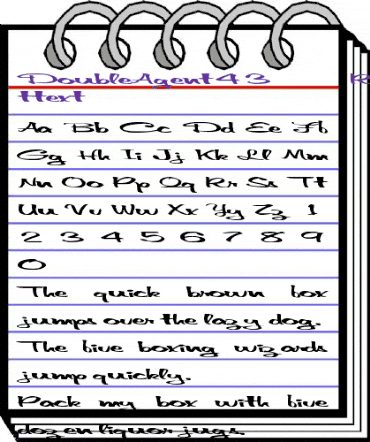 DoubleAgent43 R
Aa Bb Cc Dd Ee Ff
Gg Hh Ii Jj Kk Ll Mm
Nn Oo Pp Qq Rr Ss Tt
Uu Vv Ww Xx Yy Zz 1
2 3 4 5 6 7 8 9
0
The quick brown fox
jumps over the lazy dog.
The five boxing wizards
jump quickly.
Pack my box with five
dozen liquor jugs